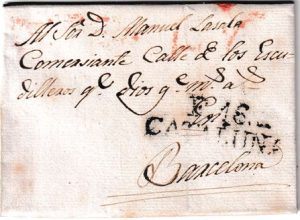 Al Sor. D. Manuel Lasala
Comersiante Calle de los Escu
dilleros qe. Dios ge. ms. as.
Barcelona